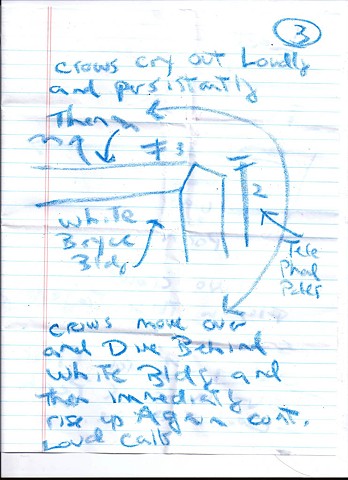 3
crows cry out Loudly
and persistantly
Then
#3
2
White
Bryck
Bldg
Tele
Phal
Poles
crows move over
and Dive Behind
White Bldg. and
then immediatly
rise up Again cont.
Loud calls